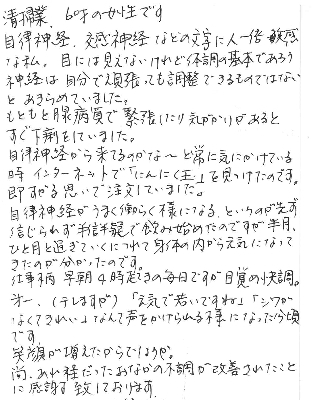 清掃業、60才の女性です
自律神経、交感神経などの文字に人一倍敏感
な私。目には見えないけれど体調の基本であろう
神経は自分で頑張っても調整できるものではない
とあきらめていました。
もともと胃腸病質で緊張したり気がかりがあると
すぐ下痢をしていました。
自律神経から来てるのかな〜と常に気にかけている
時インターネットで「にんにく玉」を見つけたのです。
即すがる思いで注文していました。
自律神経がうまく働らく様になる、というのが先ず
信じられず半信半疑で飲み始めたのですが半月、
ひと月と過ぎていくにつれて身体の内から元気になって
きたのが分かったのです。
仕事柄早朝4時起きの毎日ですが目覚め快調。
オー、(テレますが)「元気で若いですね」「シワが
なくてきれい」なんて声をかけられる様になった今頃
です。
笑顔が増えたからでしょうか。
尚、あれ程だったおなかの不調が改善されたこと
に感謝致しております。